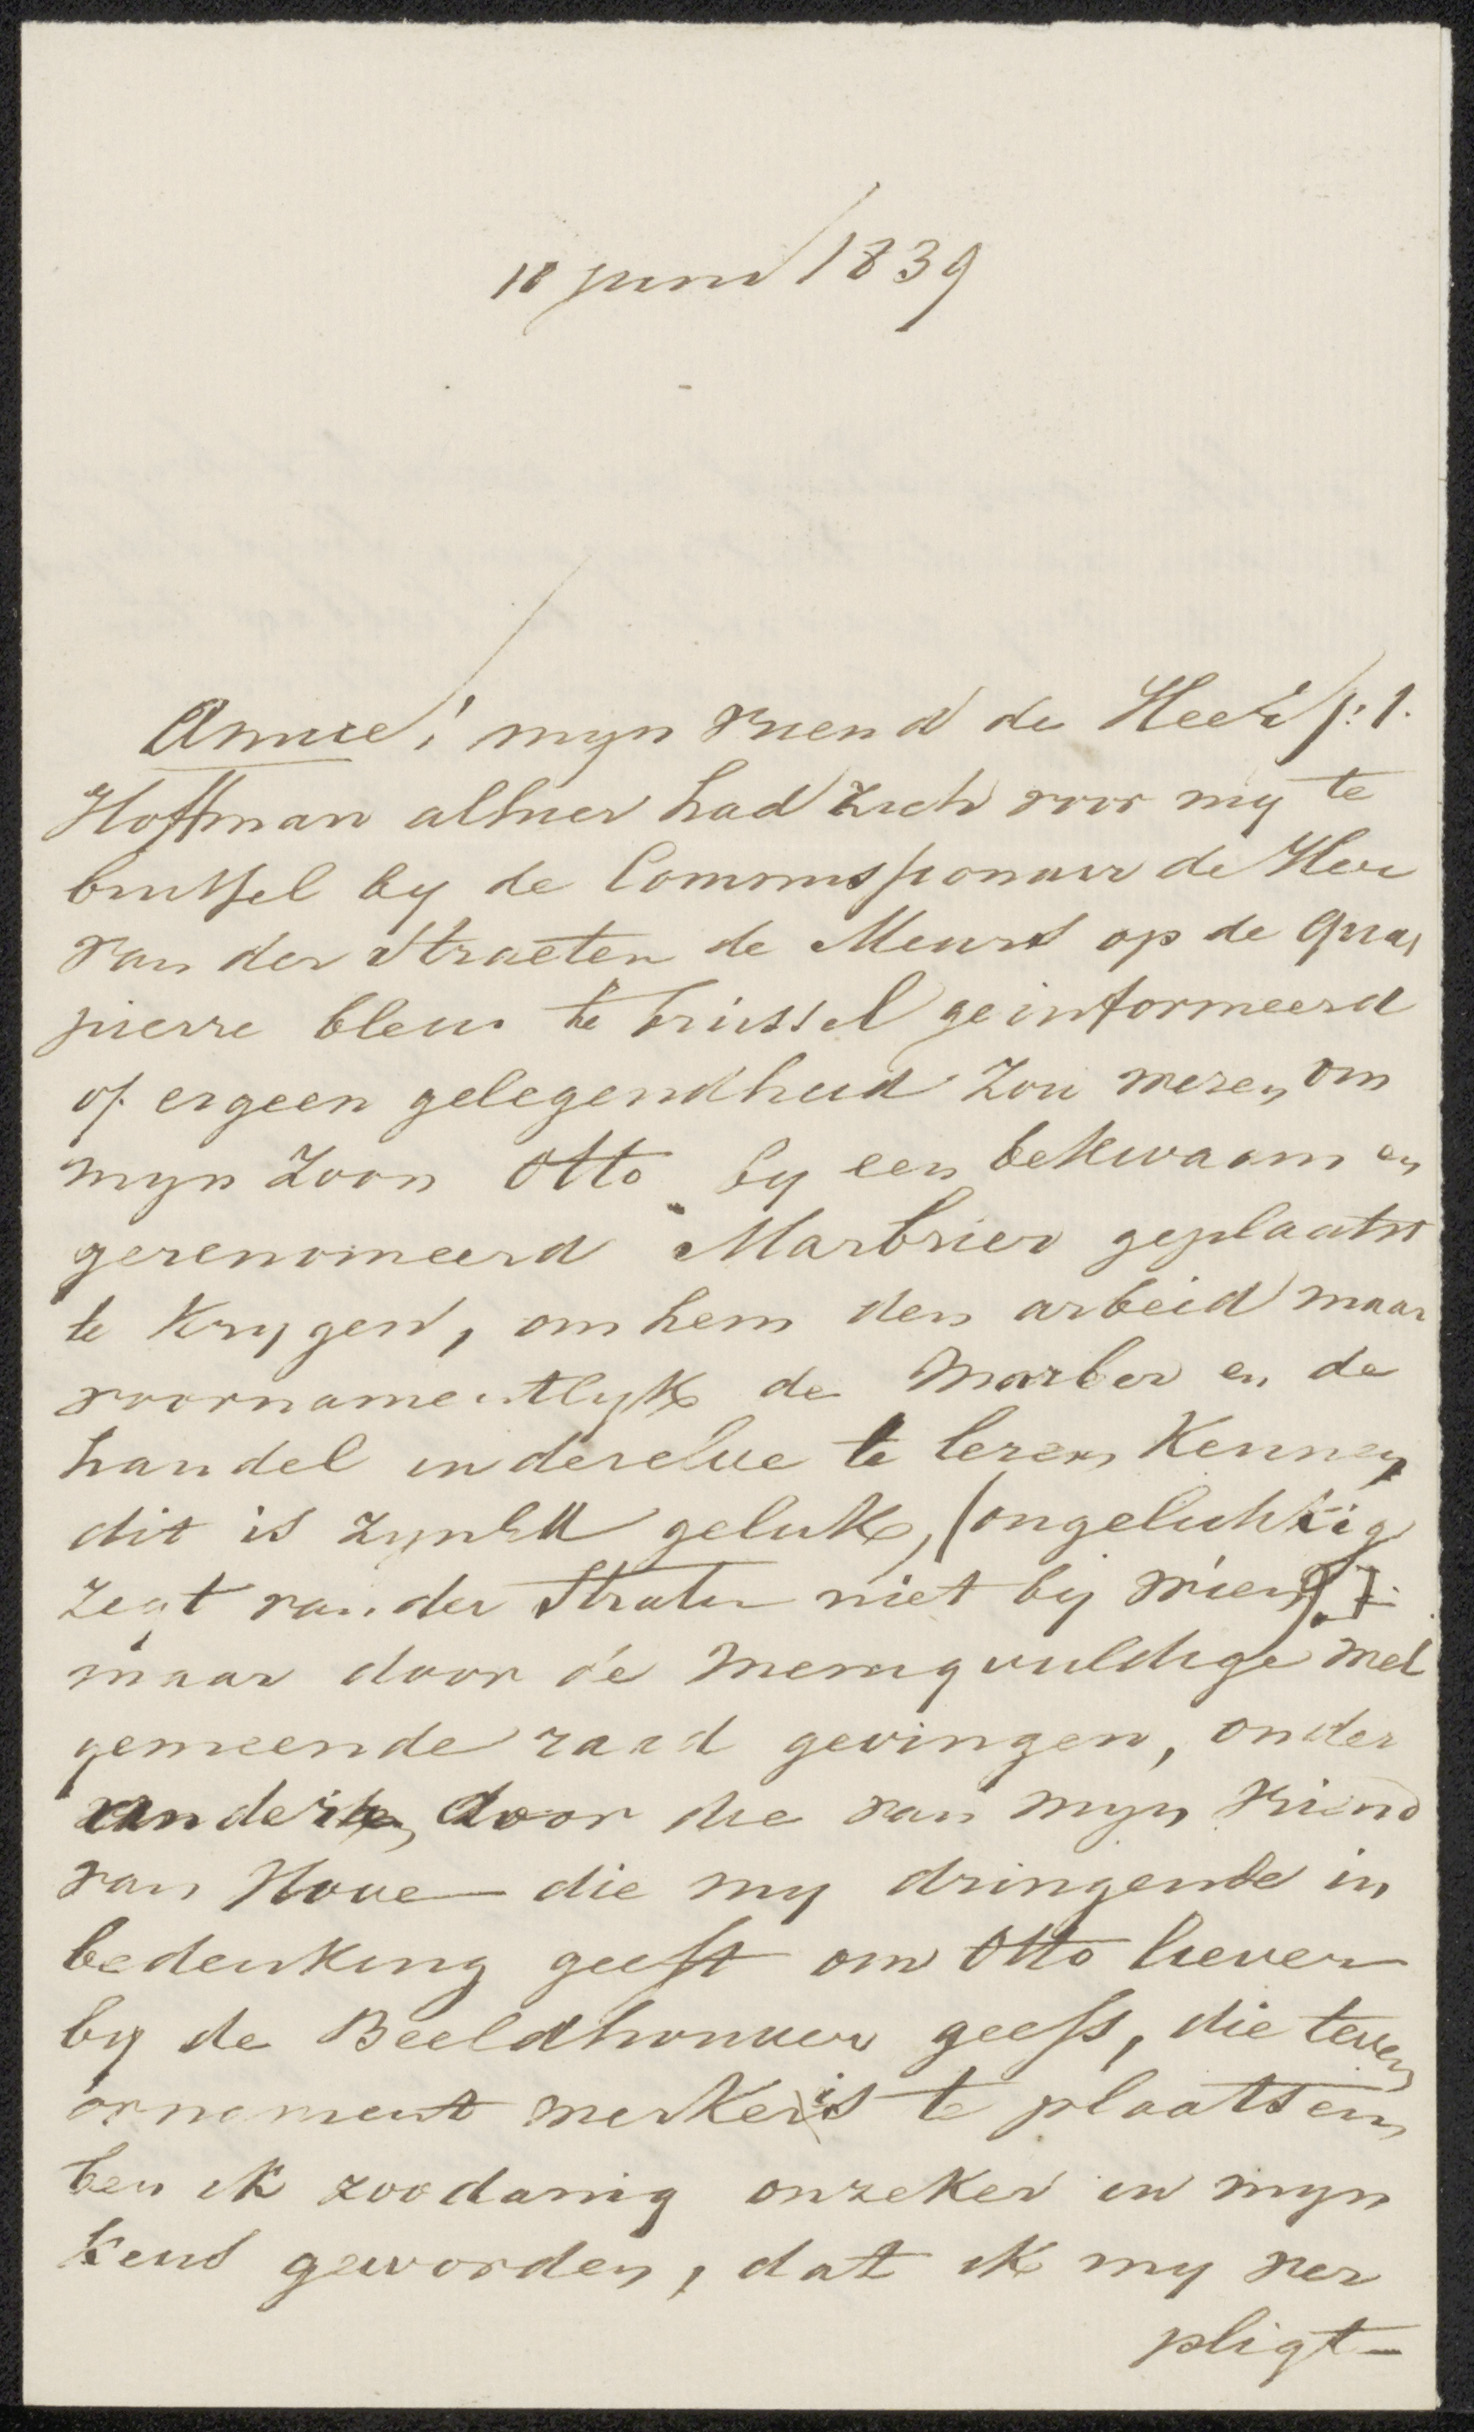 18 Juni 1839
Amice! myn vriend de Heer J: J.
Hoffman alhier had zich voor my te
brussel by de Commissionair de Heer
van der Straeten de Meurs op de Quai
pierre bleu te brussel geinformeerd
of er geen gelegendheid zou wezen om
myn zoon Otto by een bekwaam en
gerenomeerd Marbrier geplaatst
te krygen, om hem den arbeid maar
voornamentlyk de Marber en de
handel in derelve te leren kennen
dit is zynEd geluk, (ongelukkig
zegt van der Straten niet bij
maar door de menigvuldige wel
gemeende raad gevingen, onder
anderen door die van myn vriend
van Hove — die my dringende in
bedenking geeft om Otto liever
by de Beeldhouwer geefs, die tevens
ornament werker is te plaatsen
ben ik zoodanig onzeker in myn
keus geworden, dat ik my ver
pligt —